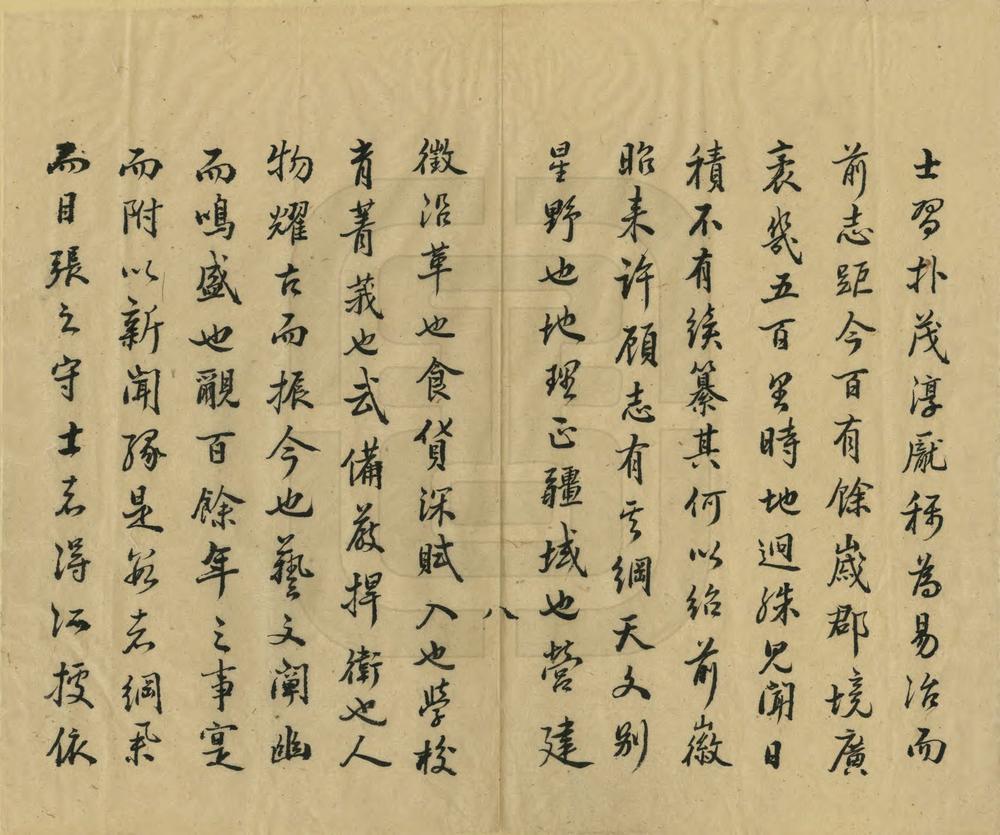 士習朴茂淳厖称為易治而
前志距今百有餘歲郡境廣
袤幾五百里時地迥殊見聞日
積不有續纂其何以紹前徽
昭来許顧志有其綱天文別
星野也地理正疆域也營建
八
徵沿革也食貨深賦入也學校
育菁莪也武備嚴捍衛也人
物耀古而振今也藝文闡幽
而鳴盛也覼百餘年之事寔
而附以新聞縁是數者綱舉
而目張之守土者得所據依